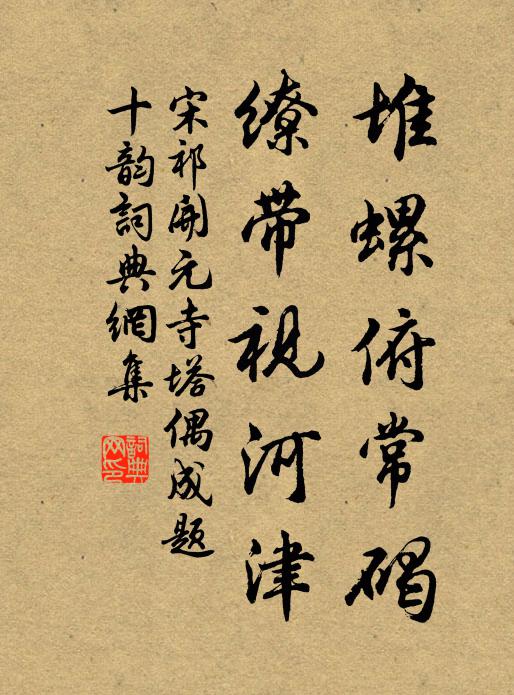 堆螺俯常碣
缭带视河津
宋祁開元寺塔偶成題
十韵詞典網集
詞典
网印